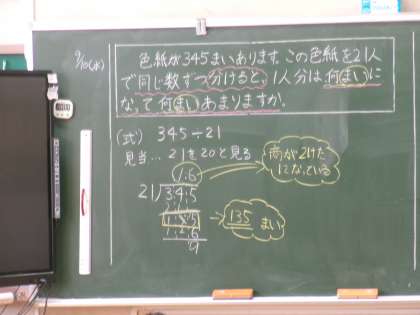 9/10(水)
色紙が345まいあります。この色紙を21人
で同じ数ずつ分けると、1人分は何まいに
なって何まいあまりますか。
(式) 345÷21
見当…21を20と見る
商が2けた
になっている
16
21)345
21
135
126
9
→135まい